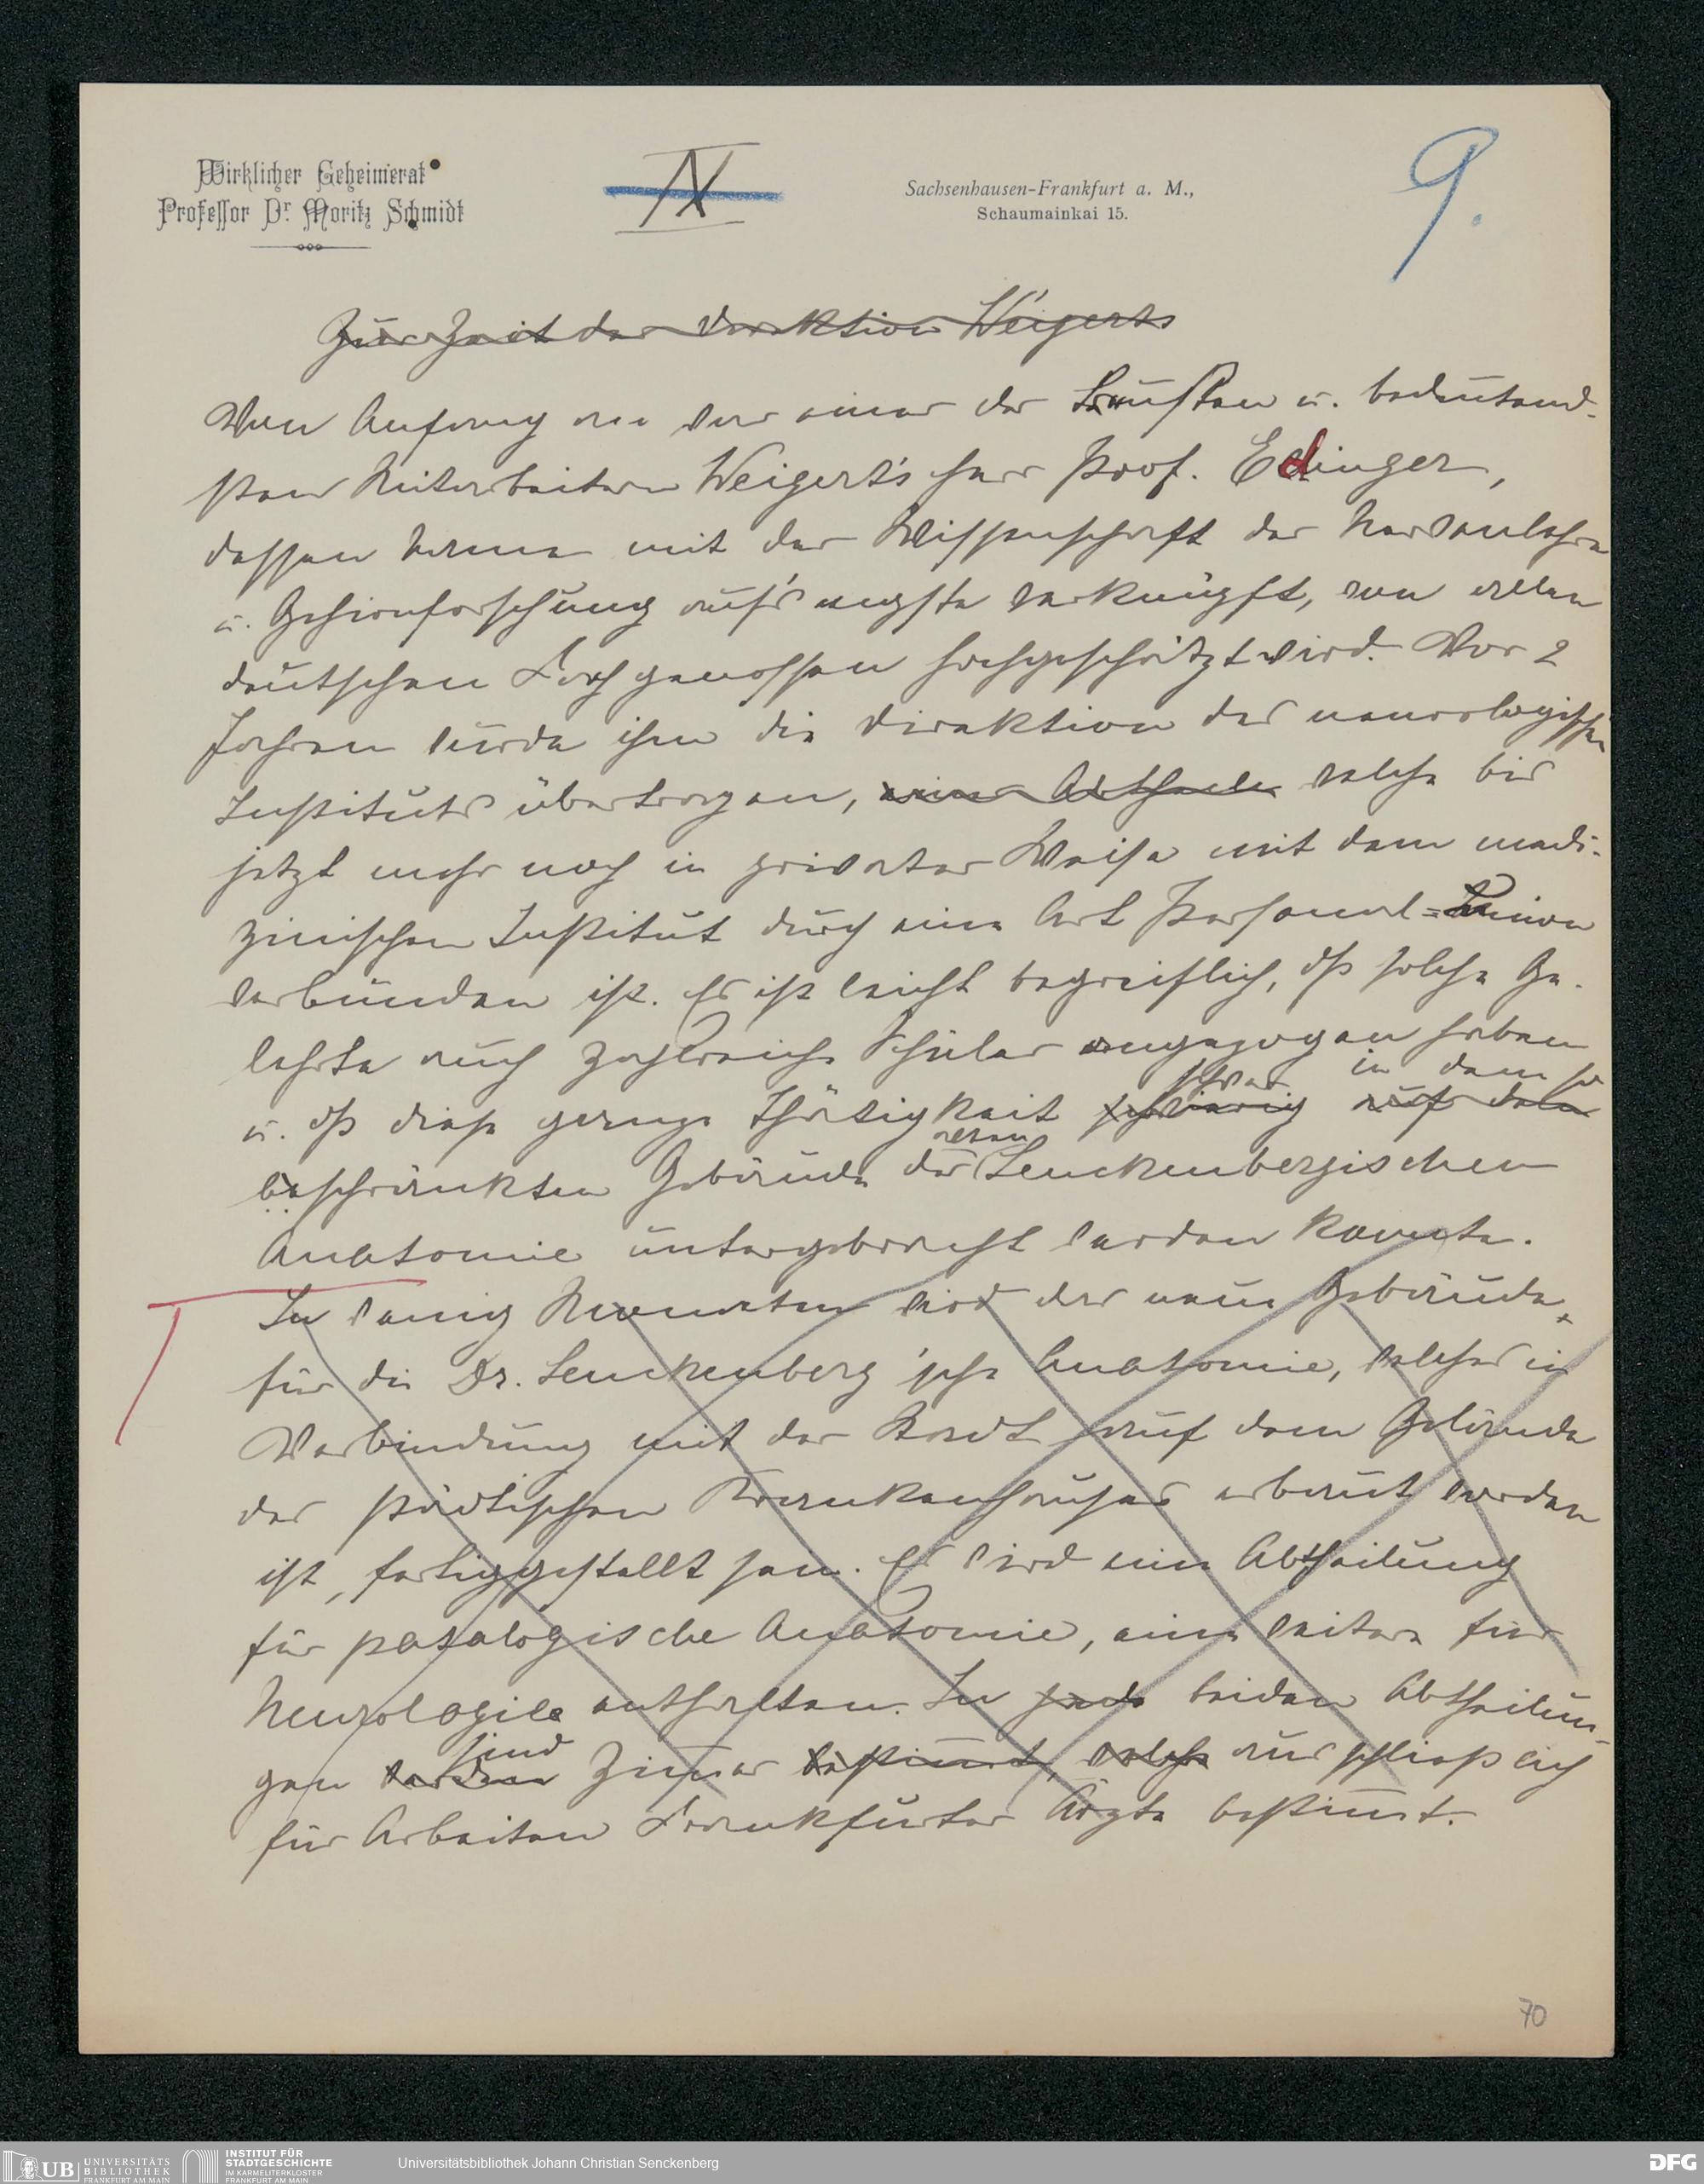 Wirklicher Geheimerat
Professor Dr. Moritz Schmidt
IX
Sachsenhausen-Frankfurt a. M.,
Schaumainkai 15.
9.
Zur Zeit der Direktion Weigerts
Von Anfang an war einer der treusten u. bedeutend-
sten Mitarbeitern Weigert's Herr Prof. Edinger,
dessen Name mit der Wissenschaft der Nervenlehre
u. Gehirnforschung auf's engste verknüpft, von allen
deutschen Fachgenossen hochgeschätzt wird. Vor 2
Jahren wurde ihm die Direktion des neurologischen
Instituts übertragen, welche bis
jetzt mehr noch in privater Weise mit dem medi-
zinischen Institut durch eine Art Personal-Union
verbunden ist. Es ist leicht begreiflich, dß solche Ge-
lehrte auch zahlreiche Schüler angezogen haben
u. dß diese ganze Thätigkeit schwierig auf dem
schwer in dem so
beschränkten Gebäude der Senckenbergischen
alten
Anatomie untergebracht werden konnte.
In wenig Monaten wird das neue Gebäude,
für die Dr. Senckenberg'sche Anatomie, welches in
Verbindung mit der Stadt auf dem Gelände
des städtischen Krankenhauses erbaut worden
ist, fertiggestellt sein. Es wird eine Abtheilung
für patalogische Anatomie, eine weitere für
Neurologie enthalten. In jede beiden Abtheilun-
gen werden Zimmer bestimmt, welche ausschliesslich
sind
für Arbeiten Frankfurter Ärzte bestimmt.
70
UB UNIVERSITÄTS
BIBLIOTHEK
FRANKFURT AM MAIN
INSTITUT FÜR
STADTGESCHICHTE
IM KARMELITERKLOSTER
FRANKFURT AM MAIN
Universitätsbibliothek Johann Christian Senckenberg
DFG